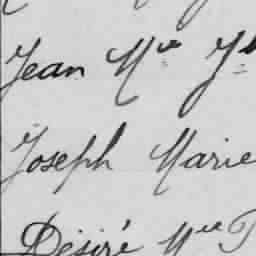 Jean Mie
Joseph Marie
Désiré Mel